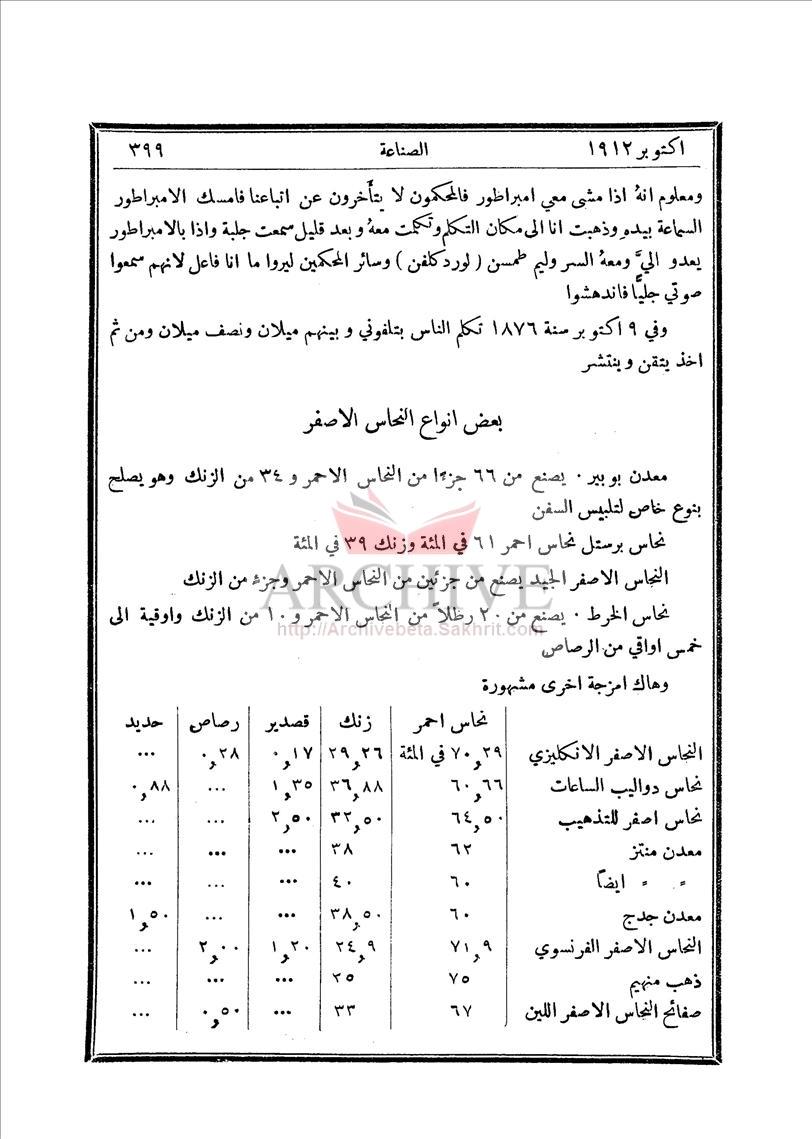 اكتوبر ١٩١٢ الصناعة ٣٩٩
ومعلوم انهُ اذا مشى معي امبراطور فالمحكمون لا يتأخرون عن اتباعنا فامسك الامبراطور
السماعة بيدهِ وذهبت انا الى مكان التكلم وتكلمت معهُ وبعد قليل سمعت جلبة واذا بالامبراطور
يعدو اليَّ ومعهُ السر وليم طمسن (لورد كلفن) وسائر المحكمين ليروا ما انا فاعل لانهم سمعوا
صوتي جليًّا فاندهشوا
وفي ٩ اكتوبر سنة ١٨٧٦ تكلم الناس بتلفوني وبينهم ميلان ونصف ميلان ومن ثم
اخذ يتقن وينتشر
بعض انواع النحاس الاصفر
معدن بوبير · يصنع من ٦٦ جزءا من النحاس الاحمر و ٣٤ من الزنك وهو يصلح
بنوع خاص لتلبيس السفن
نحاس برستل نحاس احمر ٦١ في المئة وزنك ٣٩ في المئة
النحاس الاصفر الجيد يصنع من جزئين من النحاس الاحمر وجزء من الزنك
ARCHIVE
نحاس الخرط · يصنع من ٢٠ رطلاً من النحاس الاحمر و ١٠ من الزنك واوقية الى
http://Archivebeta.Sakhrit.com
خمس اواقي من الرصاص
وهاك امزجة اخرى مشهورة
نحاس احمر زنك قصدير رصاص حديد
النحاس الاصفر الانكليزي ٧٠,٢٩ في المئة ٢٩,٢٦ ٠,١٧ ٠,٢٨ ...
نحاس دواليب الساعات ٦٠,٦٦ ٣٦,٨٨ ١,٣٥ ... ٠,٨٨
نحاس اصفر للتذهيب ٦٤,٥٠ ٣٢,٥٠ ٢,٥٠ ... ...
معدن منتز ٦٢ ٣٨ ... ... ...
" " ايضاً ٦٠ ٤٠ ... ... ...
معدن جدج ٦٠ ٣٨,٥٠ ... ... ١,٥٠
النحاس الاصفر الفرنسوي ٧١,٩ ٢٤,٩ ١,٢٠ ٢,٠٠ ...
ذهب منهيم ٧٥ ٢٥ ... ... ...
صفائح النحاس الاصفر اللين ٦٧ ٣٣ ... ٠,٥٠ ...